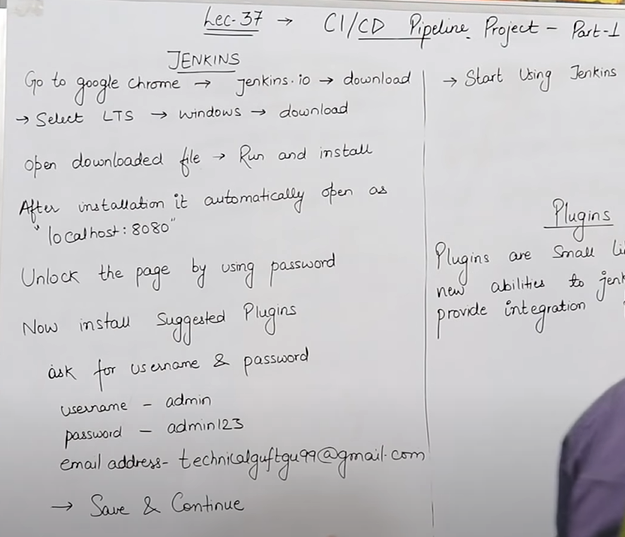 Lec-37 → CI/CD Pipeline Project - Part-1
JENKINS
Go to google chrome → jenkins.io → download
→ Select LTS → windows → download
open downloaded file → Run and install
After installation it automatically open as
"localhost:8080"
Unlock the page by using password
Now install Suggested Plugins
ask for username & password
username - admin
password - admin123
email address- technicalguftgu99@gmail.com
→ Save & Continue
→ Start Using Jenkins
Plugins
Plugins are Small
new abilities to
provide integration